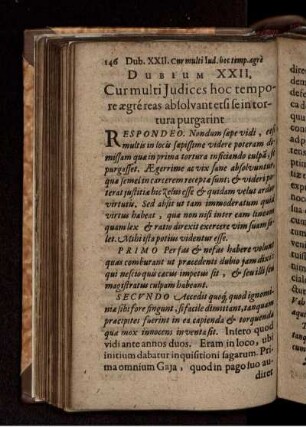 146 Dub. XXII. Cur multi Jud. hoc temp. ægrè
DUBIUM XXII.
Cur multi Judices hoc tempo-
re ægrè reas absolvant etsi se in tor-
tura purgarint
RESPONDEO. Nondum sæpe vidi, etsi
multis in locis sæpissime videre poteram di-
missam quæ in prima tortura rejiciendo culpã, se
purgasset. Ægerrime ac vix sane absolvuntur
quæ semel in carcerem receptæ sunt; & videri po-
terat justitiæ hic Zelus esse & quidam velut ardor
virtutis; Sed absit ut tam immoderatum quid
virtus habeat, quæ non nisi inter eam lineam
quam lex & ratio direxit exercere vim suam so-
let. Mihi ista potius videntur esse.
PRIMO Per fas & nefas habere volunt
quas comburant ut præcedenti dubio jam dixi:
qui nescio quis cæcus impetus sit, & seu illi sed
magistratus culpam habeant.
SECUNDO Accedit quoq, quod ignomi-
nia sibi fore fingunt, si facile dimittant, tanquam
præcipites fuerint in ea capienda & torquenda
quæ mox innocens inventa sit. Intero quod
vidi ante annos duos. Eram in loco, ubi
initium dabatur inquisitioni sagarum. Pri-
ma omnium Gaja, quod in pago suo au-
diret